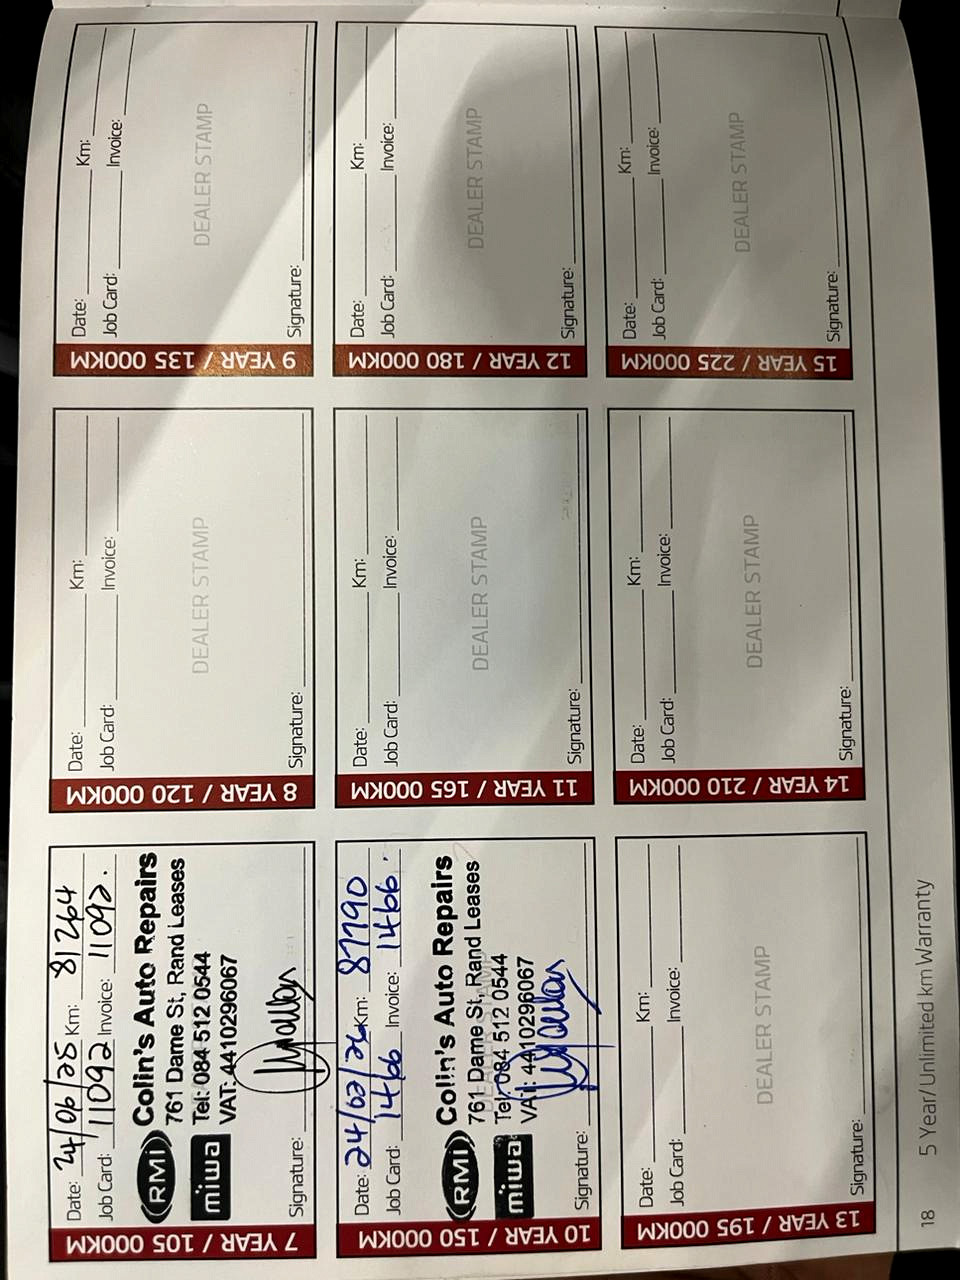 7 YEAR / 105 000KM
Date: 24/06/25 Km: 81264
Job Card: 11092 Invoice: 11092.
RMI Colin's Auto Repairs
761 Dame St, Rand Leases
miwa Tel: 084 512 0544
VAT: 4410296067
Signature:
8 YEAR / 120 000KM
Date: Km:
Job Card: Invoice:
DEALER STAMP
Signature:
9 YEAR / 135 000KM
Date: Km:
Job Card: Invoice:
DEALER STAMP
Signature:
10 YEAR / 150 000KM
Date: 24/02/26 Km: 87790
Job Card: 1466 Invoice: 1466.
RMI Colin's Auto Repairs
761 Dame St, Rand Leases
DEALER STAMP
miwa Tel: 084 512 0544
VAT: 4410296067
Signature:
11 YEAR / 165 000KM
Date: Km:
Job Card: Invoice:
DEALER STAMP
Signature:
12 YEAR / 180 000KM
Date: Km:
Job Card: Invoice:
DEALER STAMP
Signature:
13 YEAR / 195 000KM
Date: Km:
Job Card: Invoice:
DEALER STAMP
Signature:
14 YEAR / 210 000KM
Date: Km:
Job Card: Invoice:
DEALER STAMP
Signature:
15 YEAR / 225 000KM
Date: Km:
Job Card: Invoice:
DEALER STAMP
Signature:
18 5 Year/ Unlimited km Warranty